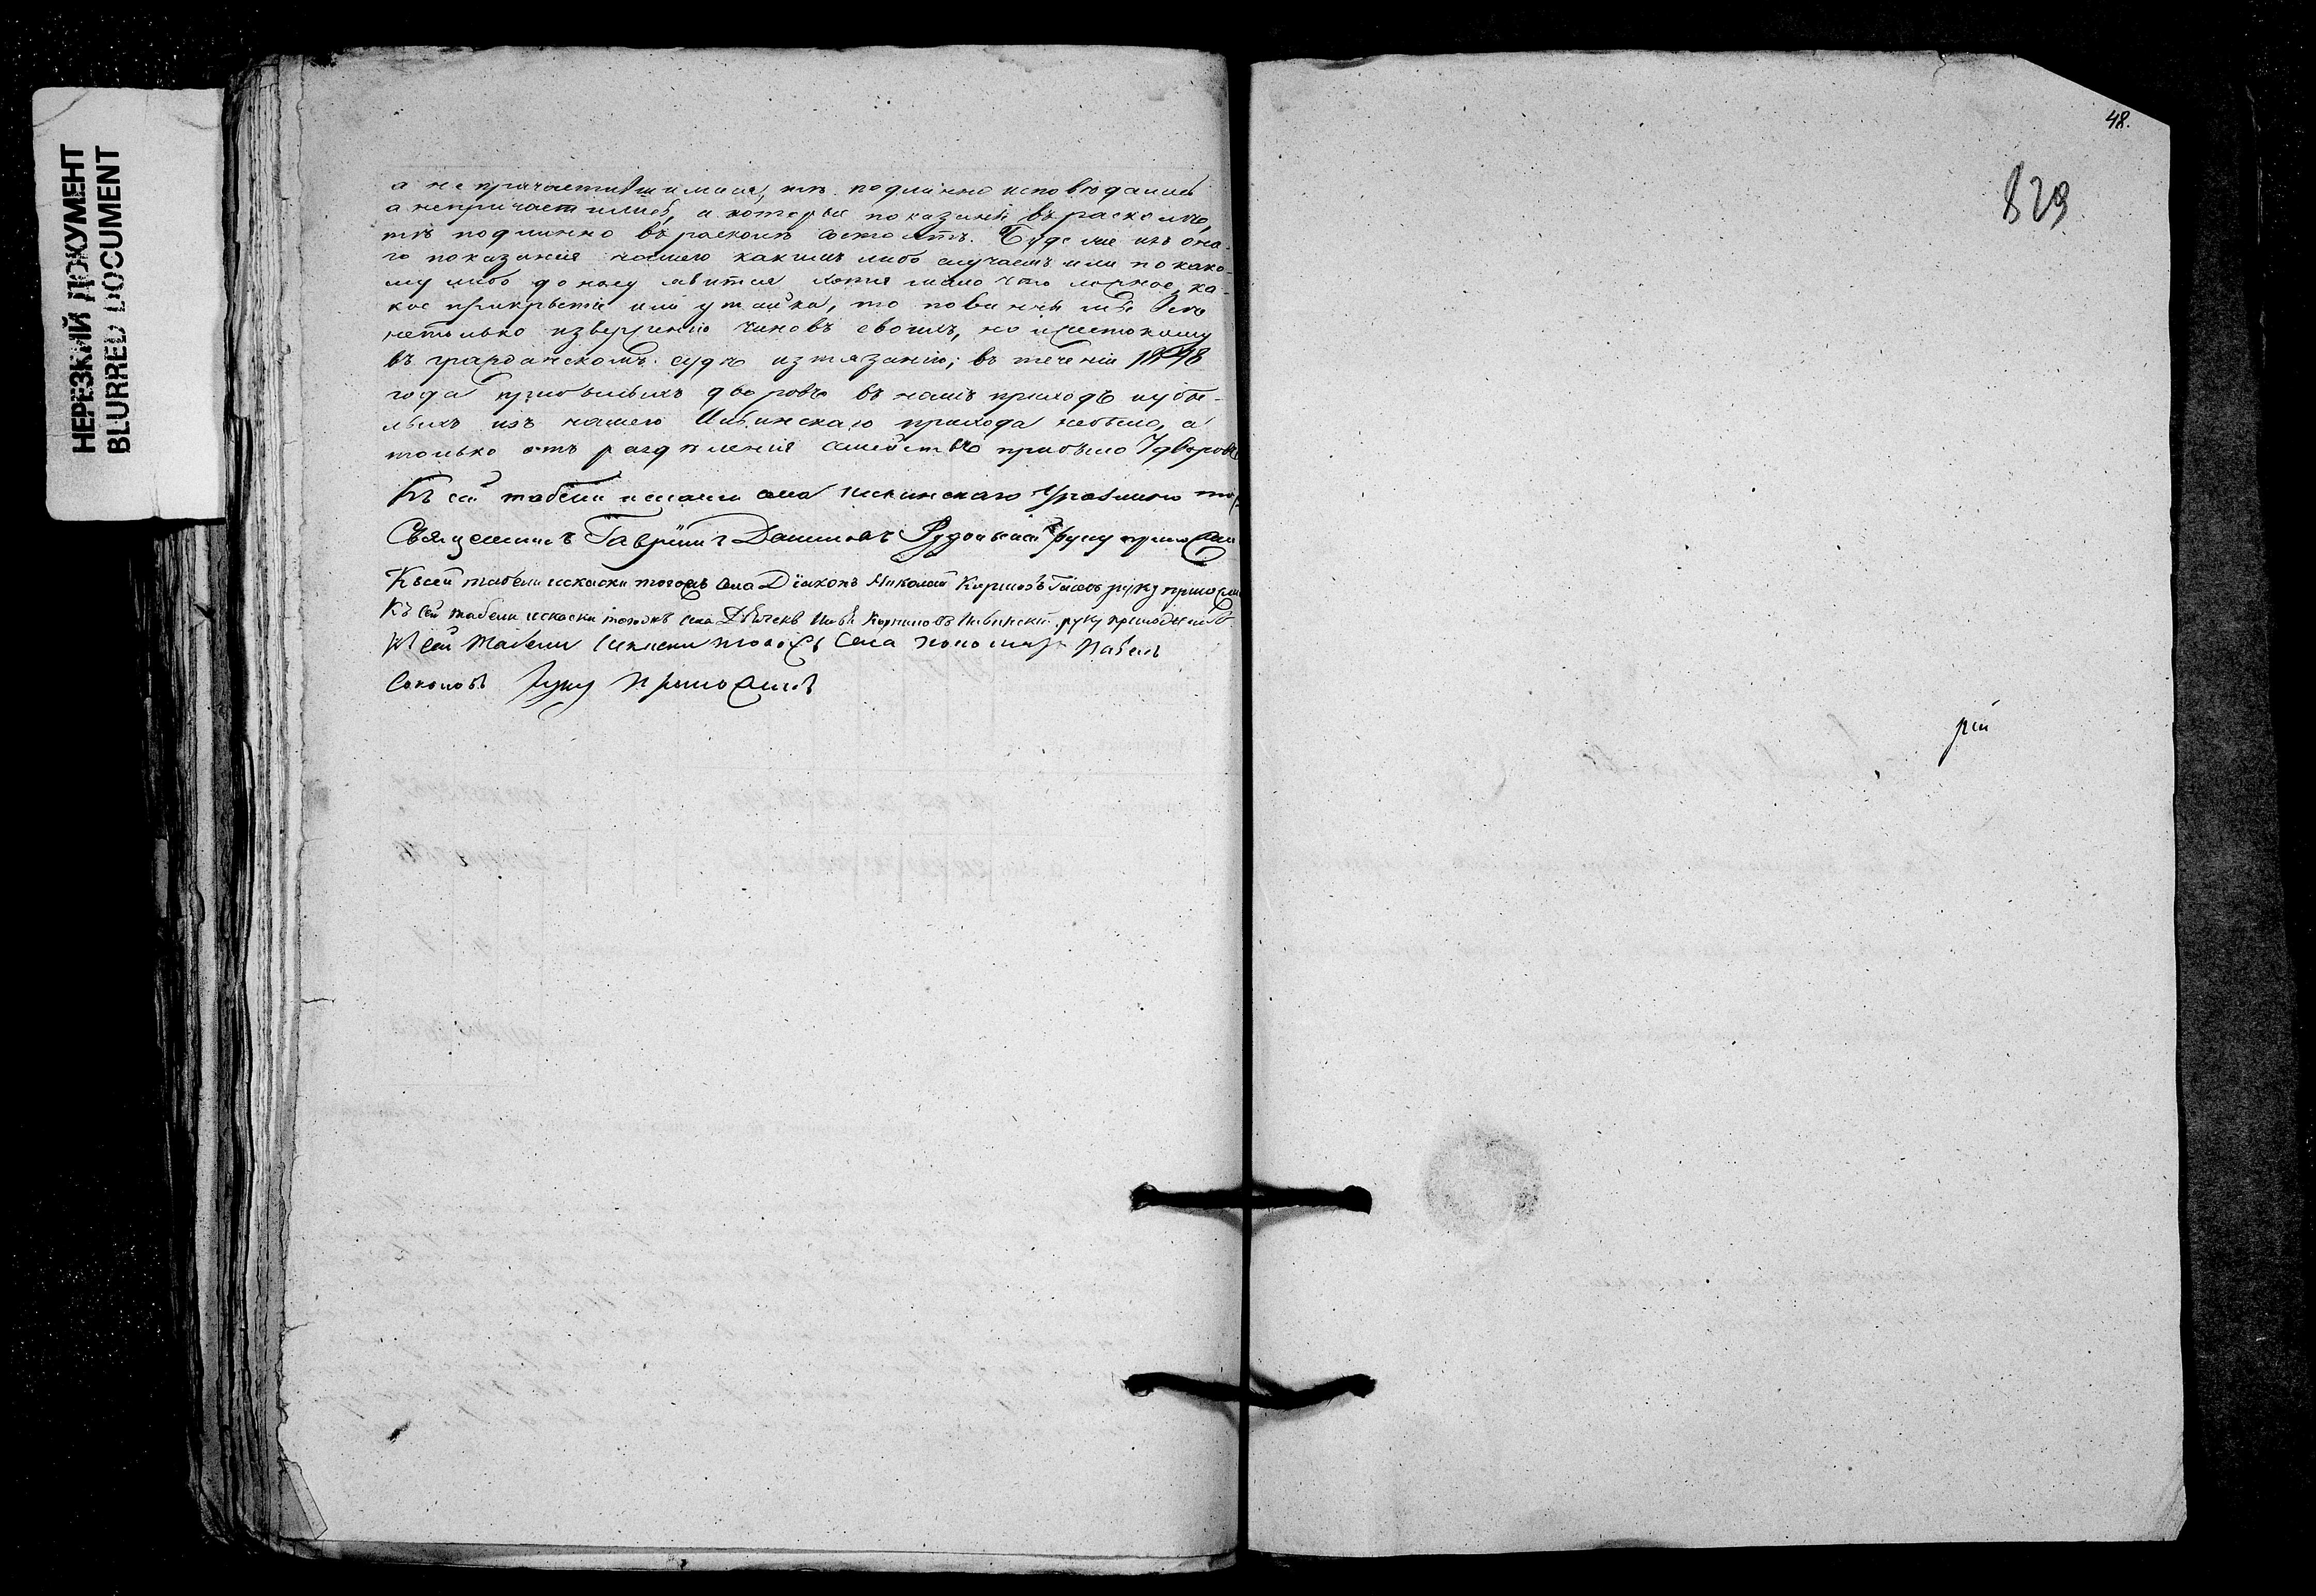 НЕРЕЗКИЙ ДОКУМЕНТ
BLURRED DOCUMENT
а непричастившимися, тѣ подлинно исповѣдались
а непричастились, а которые показаны въ расколѣ,
тѣ подлинно въ расколѣ состоятъ. Буде же изъ она-
го показанія нашего какимъ либо случаемъ или по како-
му либо доносу явится хотя мало что ложное, ка-
кое прикрытіе или утайка, то повинны мы
нетолько изверженію чиновъ своихъ, но и жестокому
въ гражданскомъ судѣ изтязанію; въ теченіи 1848
года прибылыхъ дворовъ въ нашъ приходъ и убы-
лыхъ изъ нашего Ильинскаго прихода небыло, а
только отъ раздѣленія семействъ прибыло 7 дворовъ
Къ сей табели и сказки села Ильинскаго
Священникъ Гавріилъ Даниловъ руку приложи
Къ сей табели и сказки тогожъ села Діаконъ Николай руку приложи
Къ сей табели и сказки тогожъ села Дьячекъ руку приложилъ
Къ сей табели и сказки тогожъ села пономарь Павелъ
Соколовъ руку приложилъ
48.
829
рій